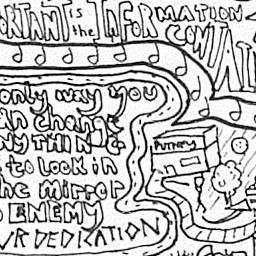 ORTANT is the INFORMATION
CONTAI
only way you
an change
NYTHING
to look in
he mirror
ENEMY
UR DEDICATION
PUTNEY